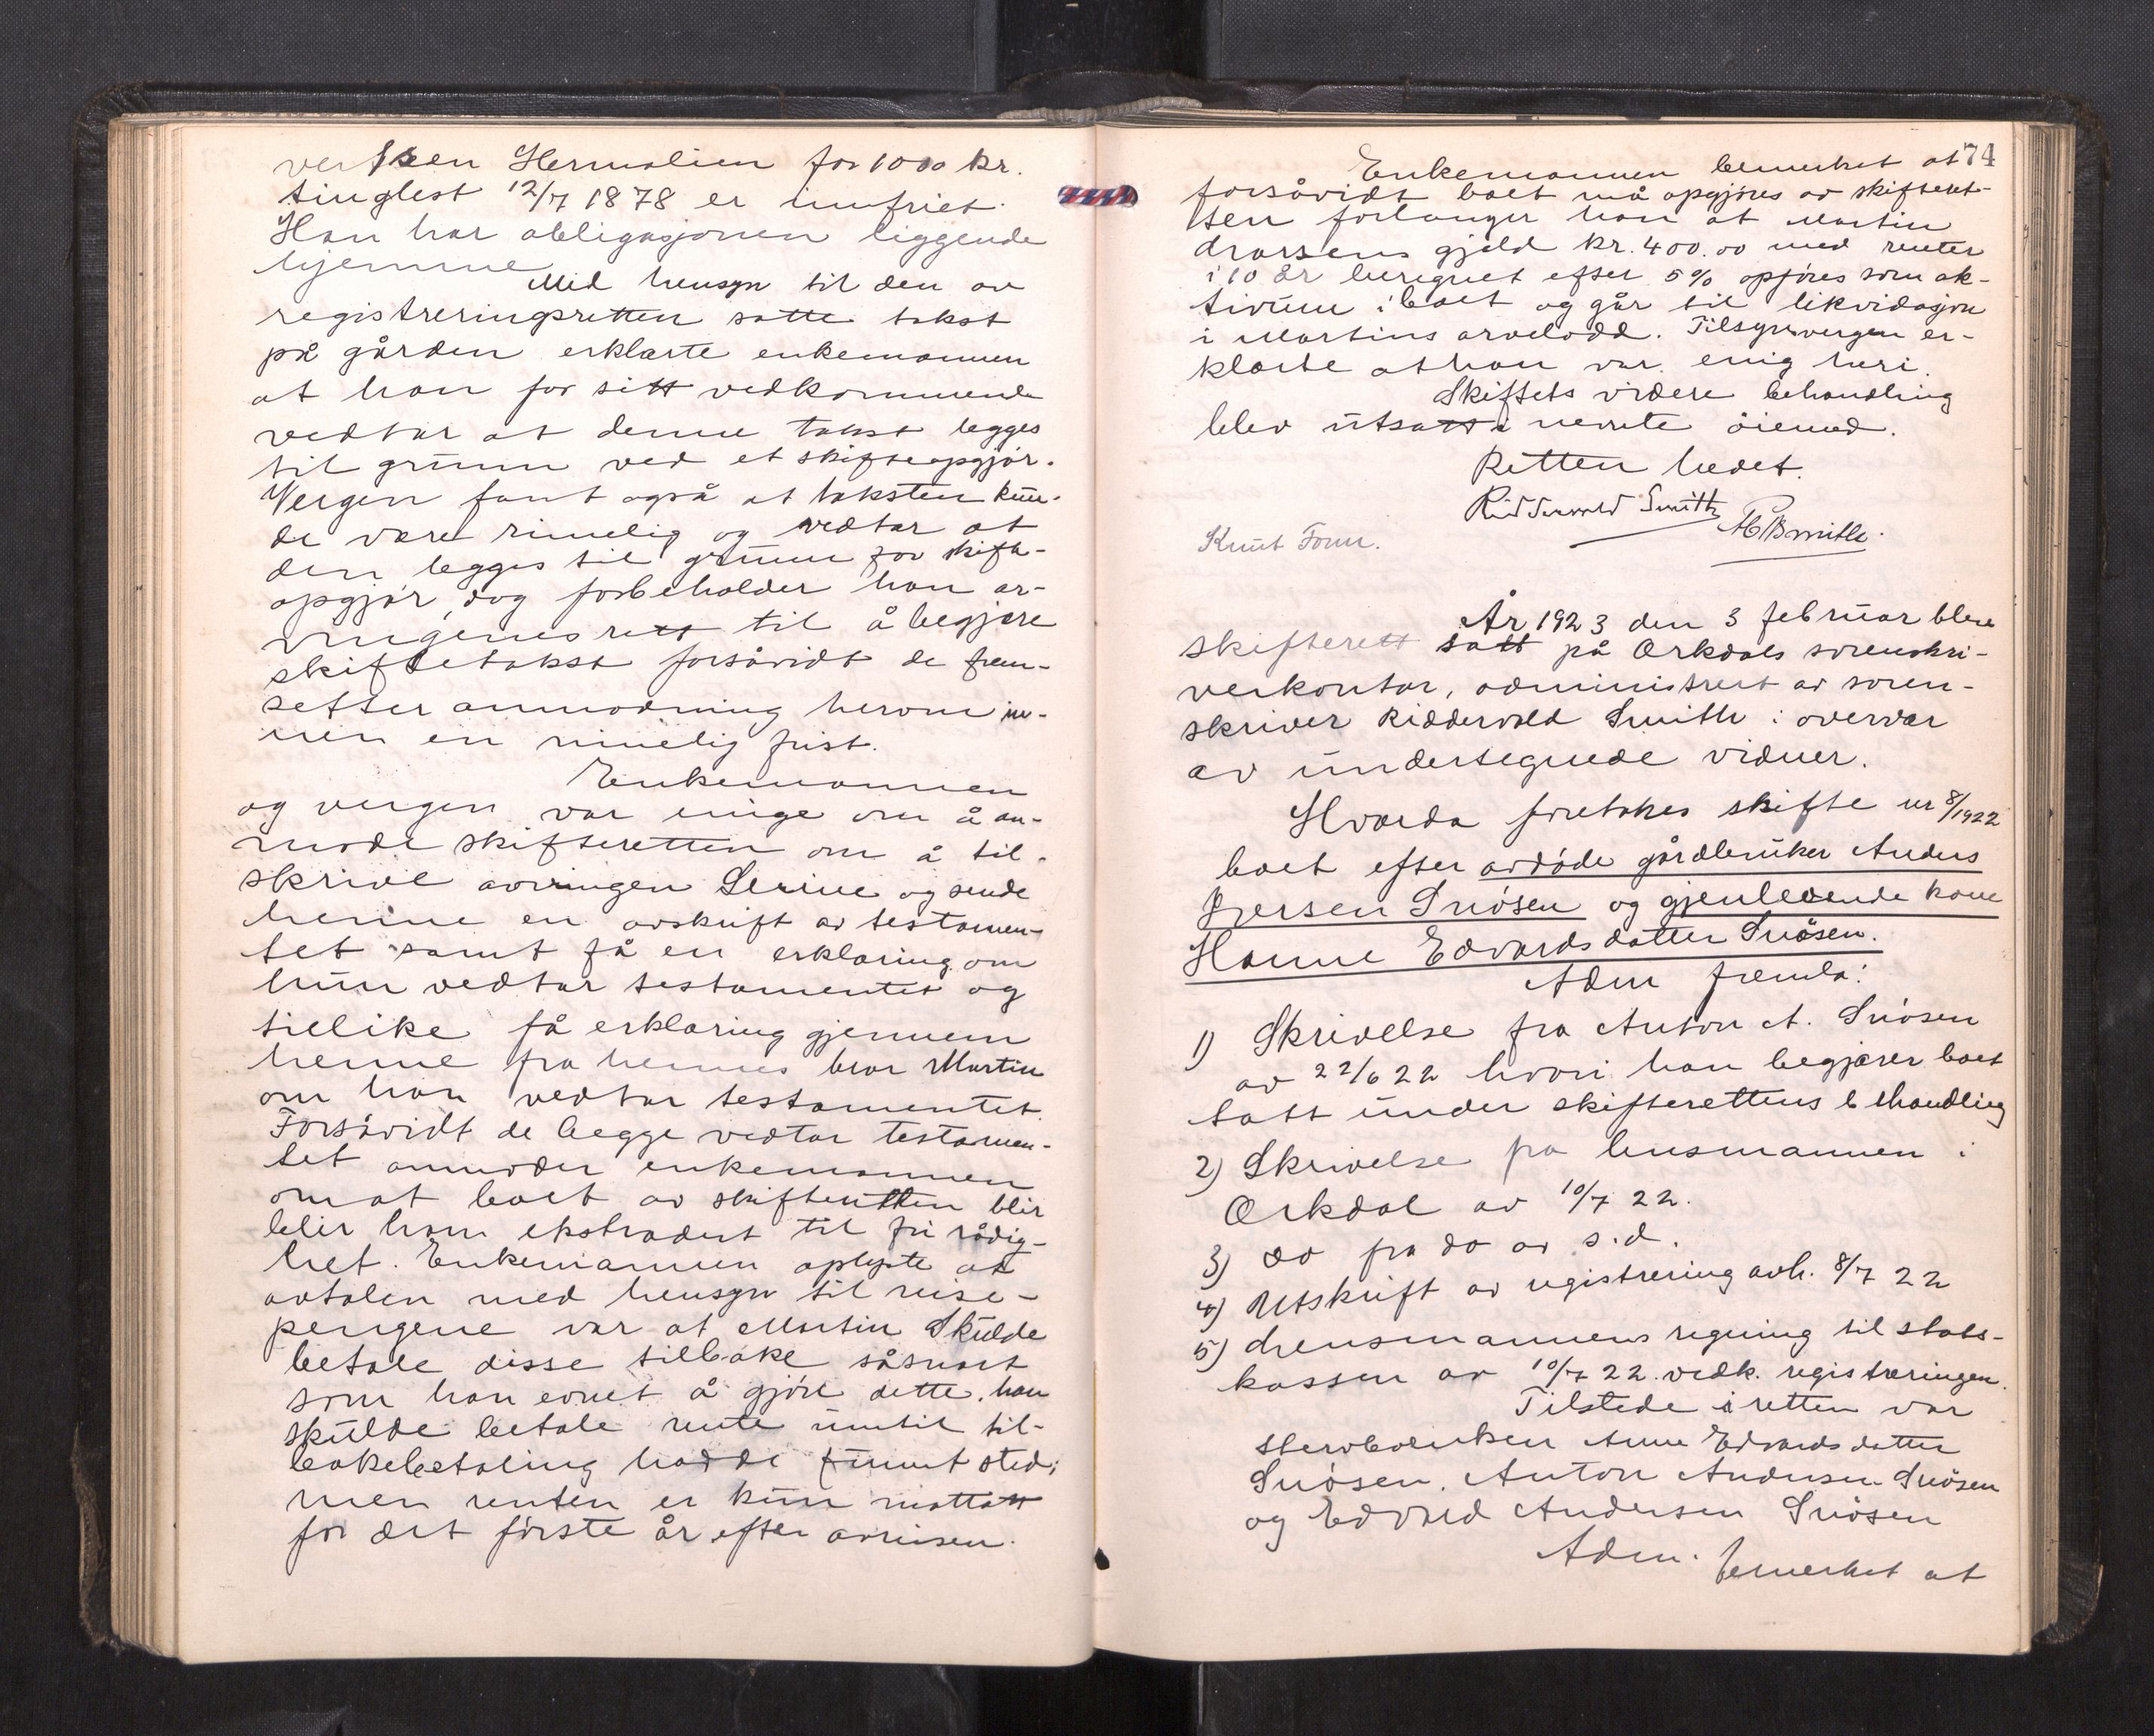 Hermalien for 1000 kr.
tinglest 12/7 1878 er innfriet.
Han har obligasjonen liggende
hjemme
Med hensyn til den av
registreringsretten satte takst
på gården erklærte enkemannen
at han for sitt vedkommende
vedtar at denne takst legges
til grunn ved et skifteopgjör.
Vergen fant også at taksten kun-
de være rimelig og vedtar at
den legges til grunn for skifte-
opgjör, dog forbeholder han ar-
vingenes rett til å begjære
skiftetakst forsåvidt de frem-
setter anmodning herom in-
nen en rimelig frist.
Enkemannen
og vergen var enige om å an-
mode skifteretten om å til-
skrive arvingen Serine og sende
henne en avskrift av testamen-
tet samt få en erklæring om
hun vedtar testamentet og
tillike få erklæring gjennem
henne fra hennes bror Martin
om han vedtar testamentet.
Forsåvidt de begge vedtar testamen-
tet anmoder enkemannen
om at boet av skifteretten blir
blir ham ekstradert til fri rådig-
het. Enkemannen oplyste at
avtalen med hensyn til reise-
pengene var at Martin skulde
betale disse tilbake såsnart
som han evnet å gjöre dette, han
skulde betale rente inntil til-
bakebetaling hadde funnet sted;
men renten er kun mottatt
for det förste år efter avreisen.
74
Enkemannen bemerket at
forsåvidt boet må opgjöres av skifteret-
ten forlanger han at Martin
Larssens gjeld kr. 400.00 med renter
i 10 år beregnet efter 5% opföres som ak-
tivum i boet og går til likvidasjon
i Martins arvelodd. Tilsynsvergen er-
klærte at han var enig heri.
Skiftets videre behandling
blev utsatt i nevnte öiemed.
Retten hevet.
Riddervold Smith
Knut Fonn.
År 1923 den 3 februar blev
skifterett satt på Orkdals sorenskri-
verkontor, administrert av soren-
skriver Riddervold Smith i overvær
av undertegnede vidner.
Hvorda foretokes skifte nr 8/1922
boet efter avdöde gårdbruker Anders
Iversen Snösen og gjenlevende kone
Hanne Edvardsdatter Snösen.
Adm fremla:
1) Skrivelse fra Anton A. Snösen
av 22/6 22 hvori han begjærer boet
tatt under skifterettens behandling
2) Skrivelse fra lensmannen i
Orkdal av 10/7 22.
3) do fra do av s.d.
4) Utskrift av registrering avh. 8/7 22
5) Lensmannens regning til stats-
kassen av 10/7 22 vedk. registreringen.
Tilstede i retten var
sterboenken Anne Edvardsdatter
Snösen, Anton Andersen Snösen
og Edvard Andersen Snösen
Adm. bemerket at